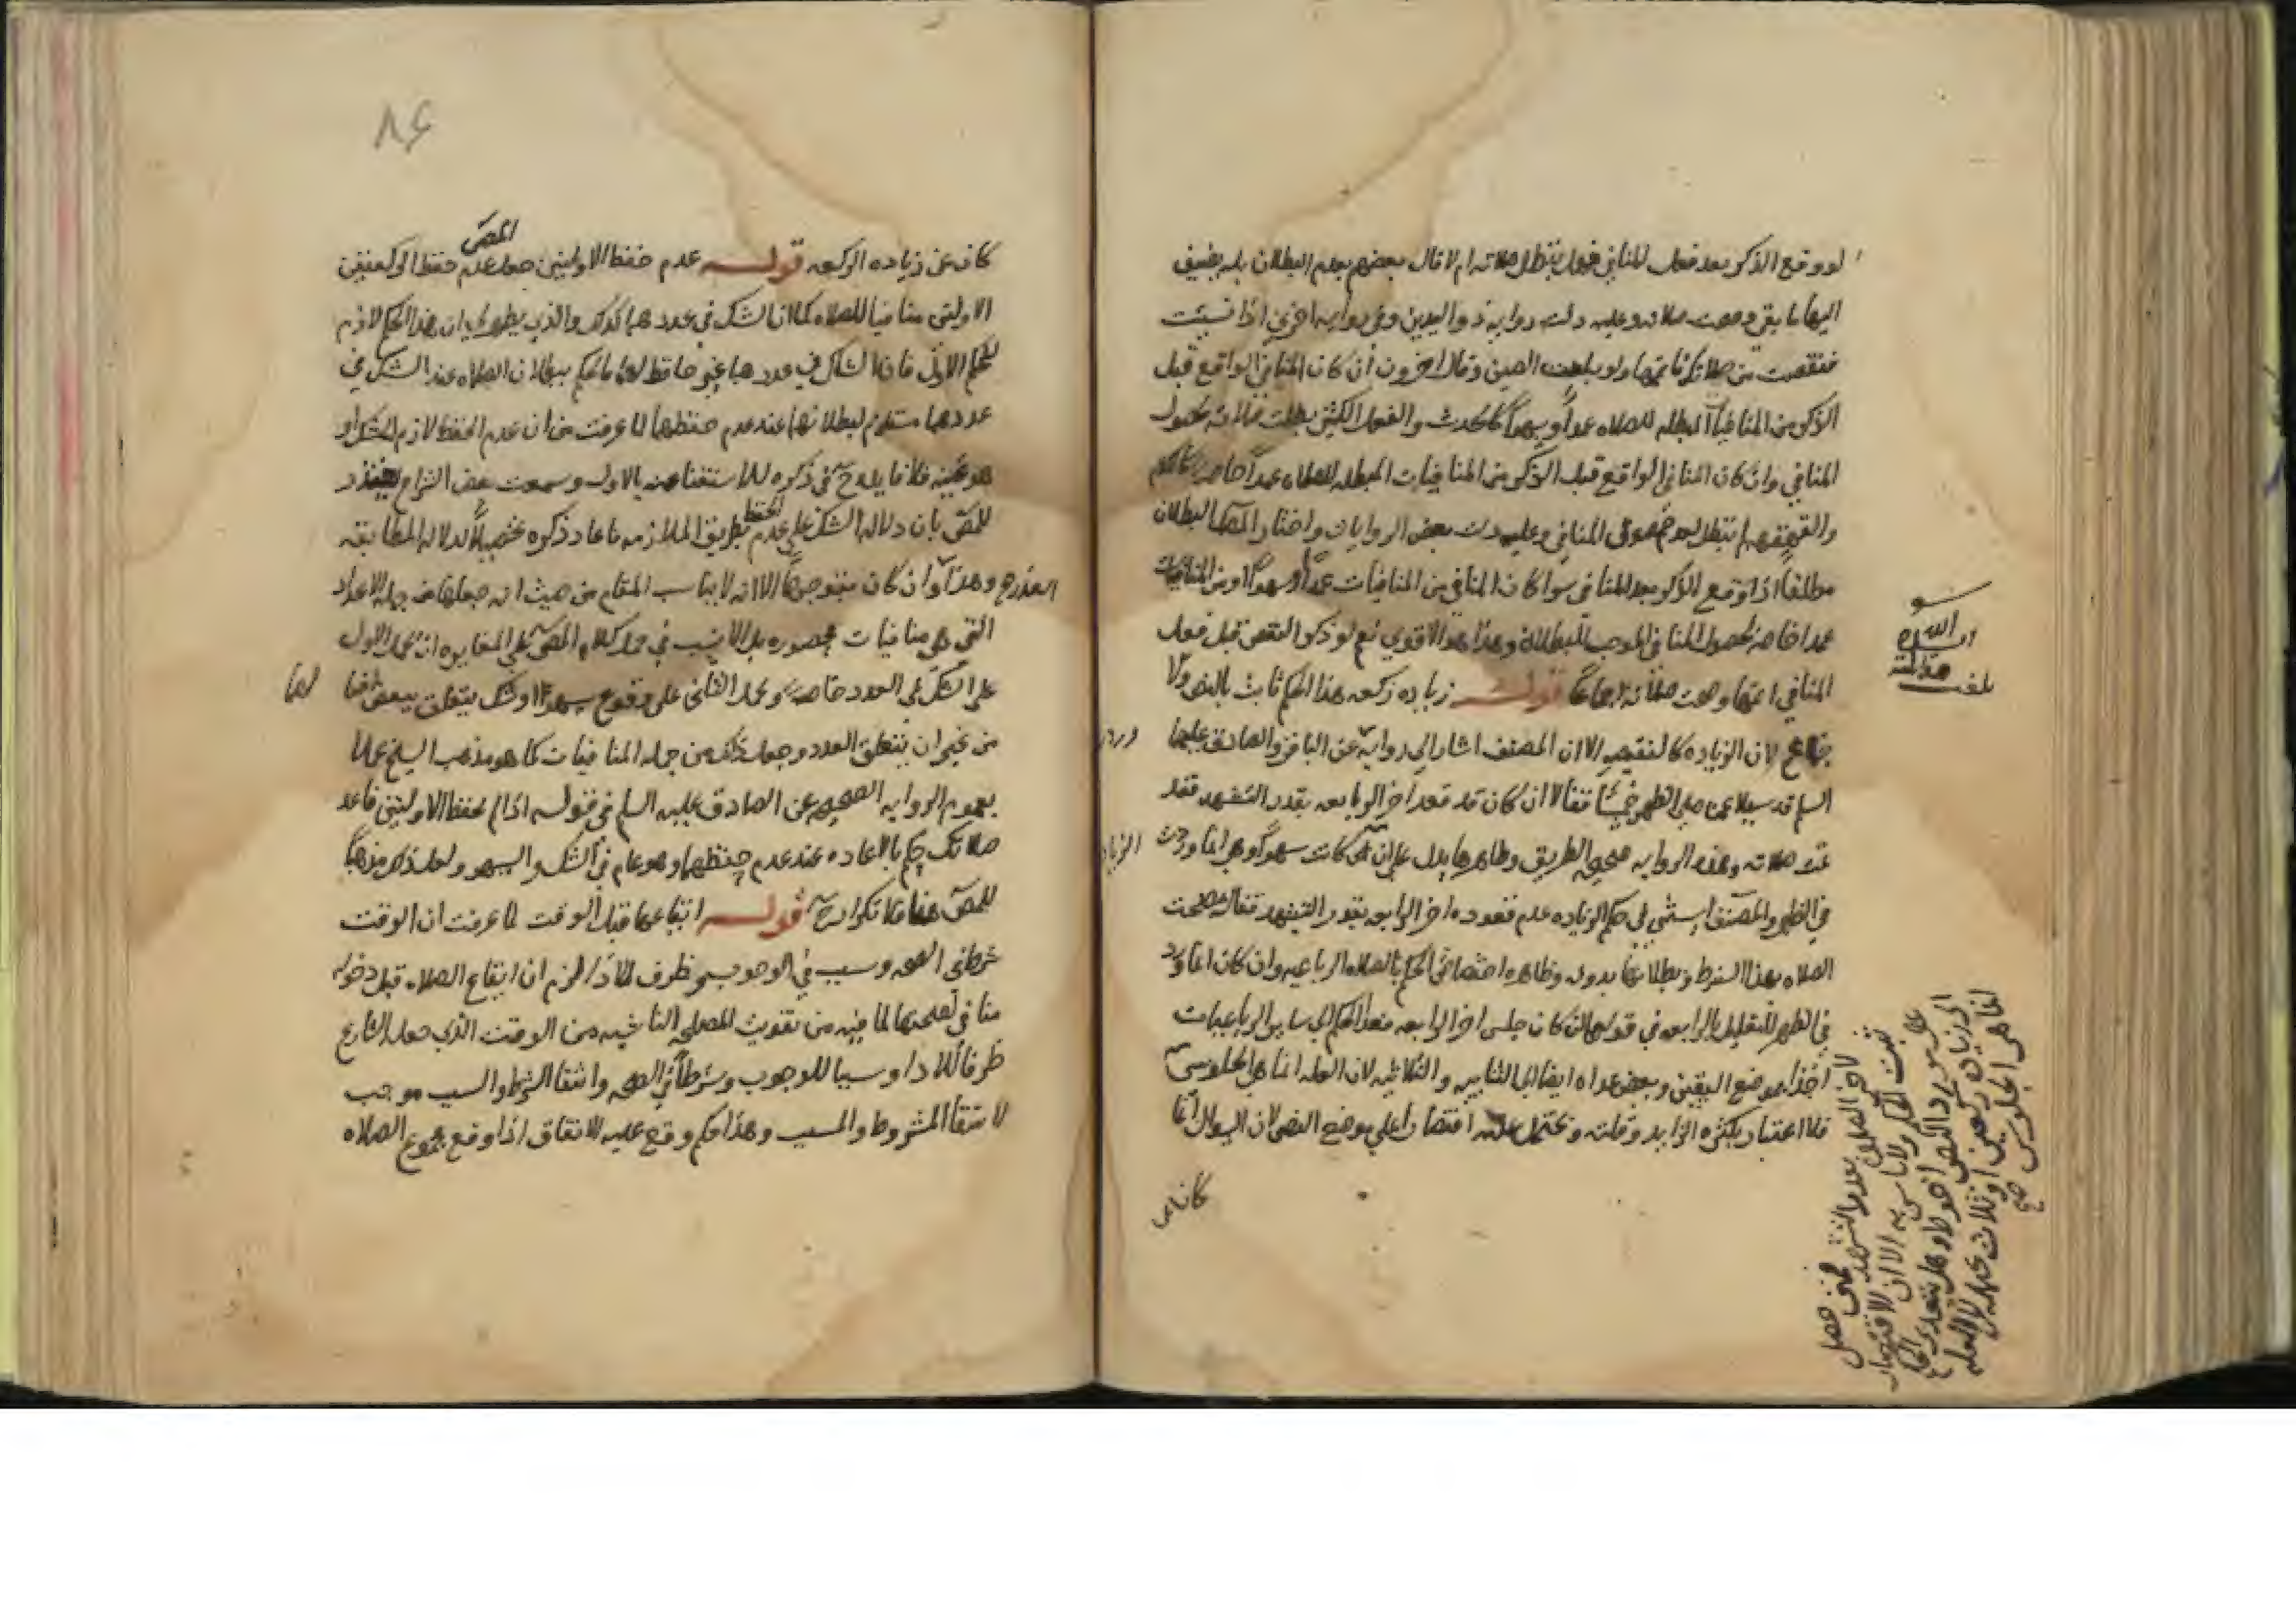 لو وقع الذكر بعد فعل المنافي فهل تبطل صلاته ام لا قال بعضهم بعدم البطلان بل يضيف
اليها ما بقي وصحت صلاته وعليه دلت رواية ذو اليدين وفي رواية اخرى اذا نسيت
فنقصت من صلاتك فاتمها ولو بلغت الصين وقال اخرون ان كان المنافي الواقع قبل
الذكر من المنافيات المبطله للصلاه عمدا وسهوا كالحدث والفعل الكثير بطلت صلاته لحصول
المنافي وان كان المنافي الواقع قبل الذكر من المنافيات المبطله للصلاه عمدا خاصه كالكلام
والقهقهه لم تبطل لعدم المنافي وعليه دلت بعض الروايات واختار المص البطلان
مطلقا اذا وقع الذكر بعد المنافي سوا كان المنافي من المنافيات عمدا وسهوا او من المنافيات
عمدا خاصه لحصول المنافي الموجب للبطلان وهذا هو الاقوى نعم لو ذكر النقص قبل فعل
المنافي اتمها وصحت صلاته اجماعا قوله زياده ركعه هذا الحكم ثابت بالنص والا
جماع لان الزياده كالنقيصه الا ان المصنف اشار الى رواية عن الباقر والصادق عليهما
السلم قد سيلا عمن صلى الظهر خمسا فقالا ان كان قد قعد اخر الرابعه بقدر التشهد فقد
تمت صلاته وهذه الروايه صحيحه الطريق وظاهرها يدل على ان كانت سهوا وهي انما وردت
في الظهر والمصنف استثنى في حكم الزياده عدم قعوده اخر الرابعه بقدر التشهد فقال بصحت
الصلاه بهذا الشرط وبطلانها بدونه وظاهره اختصاص الحكم بالصلاه الرباعيه وان كان انما ورد
في الظهر للتعليل بالرابعه في قولهما ان كان جلس اخر الرابعه فتعدى الحكم الى ساير الرباعيات
اخذا بموضع اليقين وبعض عداه ايضا الى الثنايه والثلاثيه لان العله انما هي الجلوس
فلا اعتبار بكثره الزايد وقلته ويحتمل اقتصارا على موضع النص لان السوال انما
كان عن
كان عن زياده الركعه قوله عدم حفظ الاوليين جعل المص عدم حفظ الركعتين
الاولتين منافيا للصلاه كما ان الشك في عددهما كذلك والذي يظهر لي ان هذا الحكم لازم
للحكم الاول فان الشاك في عددهما غير حافظ لهما فالحكم ببطلان الصلاه عند الشك في
عددهما مستلزم لبطلانها عند عدم حفظهما لما عرفت من ان عدم الحفظ لازم للشك او
هو عينه فلا فايده ح في ذكره للاستغنا عنه بالاول وسمعت بعض الشراح يعتذر
للمص بان دلاله الشك على عدم الحفظ بطريق الملازمه فاعاد ذكره تحصيلا لدلاله المطابقه
وهذا وان كان متوجها الا انه لا يناسب المقام من حيث انه جعلها من جمله الاعداد
التي هي منافيات محصوره بل الانسب في حمل كلام المص على المغايره ان يحمل الاول
على الشك في العدد خاصه ويحمل الثاني على وقوع سهو او شك يتعلق ببعض افعالها
من غير ان يتعلق بالعدد وجعل ذلك من جمله المنافيات كما هو مذهب الشيخ عملا
بعموم الروايه الصحيحه عن الصادق عليه السلم في قوله اذا لم تحفظ الاولتين فاعد
صلاتك حكم بالاعاده عند عدم حفظهما وهو عام في الشك والسهو ولعل ذلك مذهبا
للمص هنا فلا تكرار ح قوله ايقاعها قبل الوقت لما عرفت ان الوقت
شرط في الصحه وسبب في الوجوب وظرف للاداء لزم ان ايقاع الصلاه قبل دخوله
منافي لصحتها لما فيه من تفويت المصلحه الناشيه من الوقت الذي جعله الشارع
ظرفا للادا وسببا للوجوب وشرطا في الصحه وانتفا الشرط والسبب موجب
لانتفا المشروط والمسبب وهذا حكم وقع عليه الاتفاق اذا وقع مجموع الصلاه